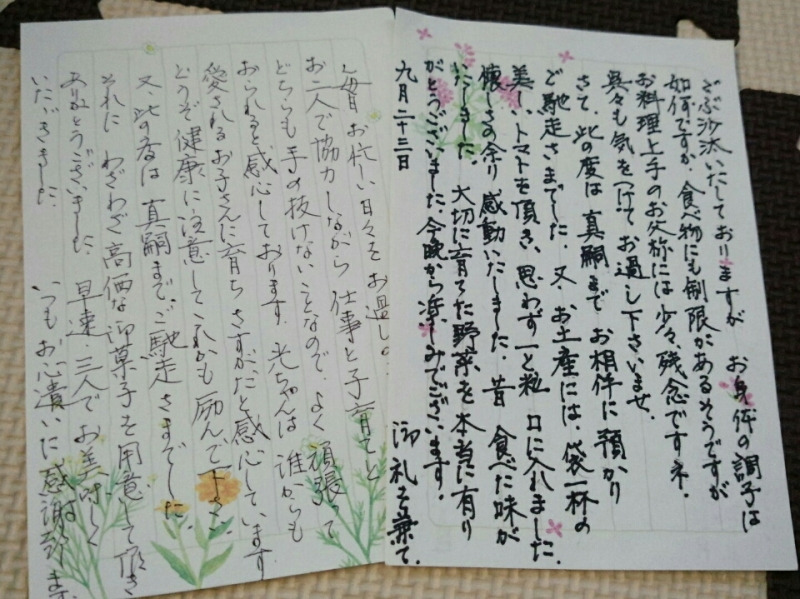 ごぶ沙汰いたしておりますが お身体の調子は
如何ですか. 食べ物にも制限があるそうですが
お料理上手のお父様には少々残念ですネ.
呉々も気をつけてお過し下さいませ.
さて、此の度は真嗣まで お相伴に預かり
ご馳走さまでした. 又、お土産には、袋一杯の
美しいトマトを頂き、思わず一と粒 口に入れました.
懐しさの余り 感動いたしました. 昔 食べた味が
いたしました. 大切に育てた野菜を本当に有り
がとうございました. 今晩から楽しみでございます.
九月二十三日 御礼を兼て.
毎日お忙しい日々をお過しの
お二人で協力しながら 仕事と子育てと
どちらも手の抜けないことなので、よく頑張って
おられると感心しております. 光ちゃんは誰からも
愛されるお子さんに育ち さすがだと感心しています.
どうぞ健康に注意してこれからも励んで下さい.
又、此の度は 真嗣まで、ご馳走さまでした
それに わざわざ高価な御菓子を用意して頂き
ありがとうございました. 早速 三人でお美味しく
いただきました. いつもお心遣いに感謝致します